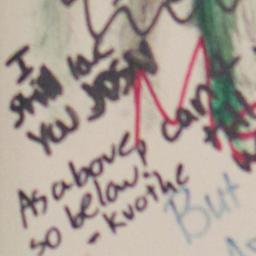 I
still love
you JOSH
can't
As above,
so below.
- Kvothe
But